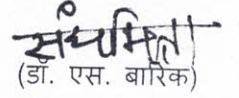 संघमित्रा
(डॉ. एस. बारिक)